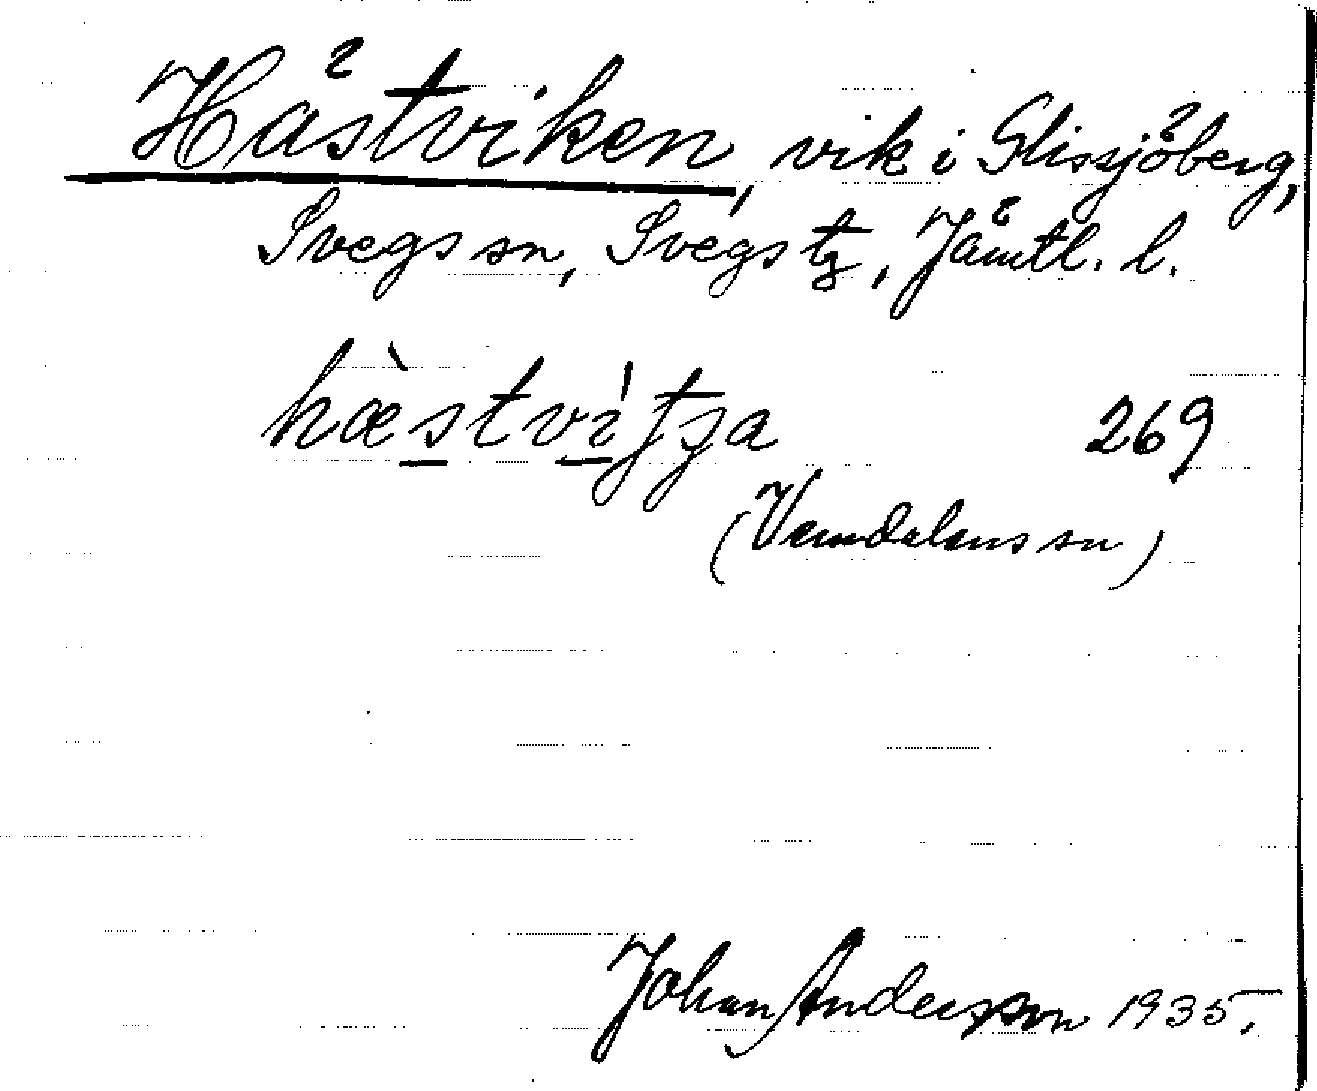 Hästviken, vik i Glissjöberg,
Svegs sn, Svegs tg, Jämtl. l.
hæ̀stvítʃa
269
(Vemdalens sn)
Johan Andersson 1935.